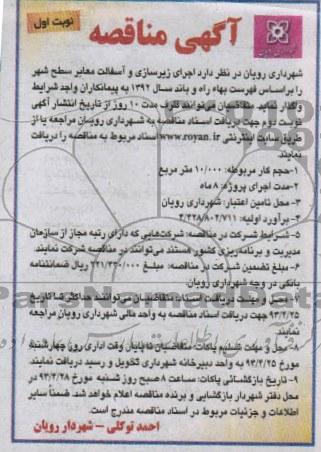 نوبت اول
آگهی مناقصه
شهرداری رویان در نظر دارد اجرای زیرسازی و آسفالت معابر سطح شهر
را براساس فهرست بهاء راه و باند سال ۱۳۹۲ به پیمانکاران واجد شرایط
واگذار نماید. متقاضیان می‌توانند ظرف مدت ۱۰ روز از تاریخ انتشار آگهی
نوبت دوم جهت دریافت اسناد مناقصه به شهرداری رویان مراجعه یا از
طریق سایت اینترنتی www.royan.ir اسناد مربوط به مناقصه را دریافت
نمایند.
۱-حجم کار مربوطه: ۱۰/۰۰۰ متر مربع
۲-مدت اجرای پروژه: ۸ ماه
۳-محل تامین اعتبار: شهرداری رویان
۴-برآورد اولیه: ۴/۴۲۸/۸۰۲/۷۱۱
۵- شرایط شرکت در مناقصه: شرکت‌هایی که دارای رتبه مجاز از سازمان
مدیریت و برنامه‌ریزی کشور هستند می‌توانند در مناقصه شرکت نمایند.
۶- مبلغ تضمین شرکت در مناقصه: مبلغ ۲۲۱/۴۴۰/۰۰۰ ریال ضمانتنامه
بانکی در وجه شهرداری رویان.
۷- محل و مهلت دریافت اسناد: متقاضیان می‌توانند حداکثر تا تاریخ
۹۳/۴/۲۵ جهت دریافت اسناد مناقصه به واحد مالی شهرداری رویان مراجعه
نمایند.
۸- محل و مهلت تسلیم پاکات: متقاضیان تا پایان وقت اداری روز چهارشنبه
مورخ ۹۳/۴/۲۵ به واحد دبیرخانه شهرداری تحویل و رسید دریافت نمایند.
۹- تاریخ بازگشائی پاکات: ساعت ۸ صبح روز شنبه مورخ ۹۳/۴/۲۸ در
محل دفتر شهردار بازگشایی و برنده مناقصه اعلام خواهد شد. ضمناً سایر
اطلاعات و جزئیات مربوط در اسناد مناقصه مندرج است.
احمد توکلی – شهردار رویان